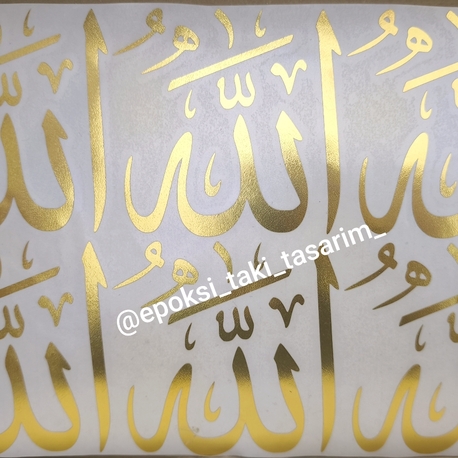 الله الله الله
@epoksi_taki_tasarim_
الله الله الله